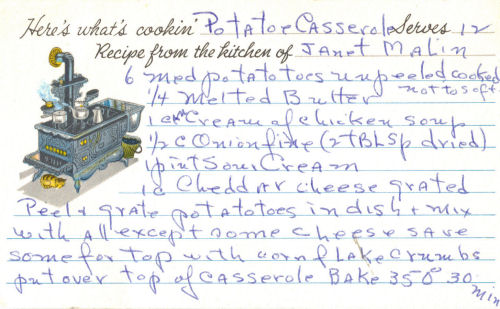 Here's what's cookin' Potatoe Casserole Serves 12
Recipe from the kitchen of Janet Malin
6 med potatotoes unpeeled cooked
not to soft
1/4 Melted Butter
1 can Cream of chicken soup
1/2 c Onion fine (2 TBLsp dried)
1 pint Sour Cream
1 c Cheddar cheese grated
Peel & grate potatotoes in dish & mix
with all except some cheese save
some for top with corn flake crumbs
put over top of casserole Bake 350° 30
min